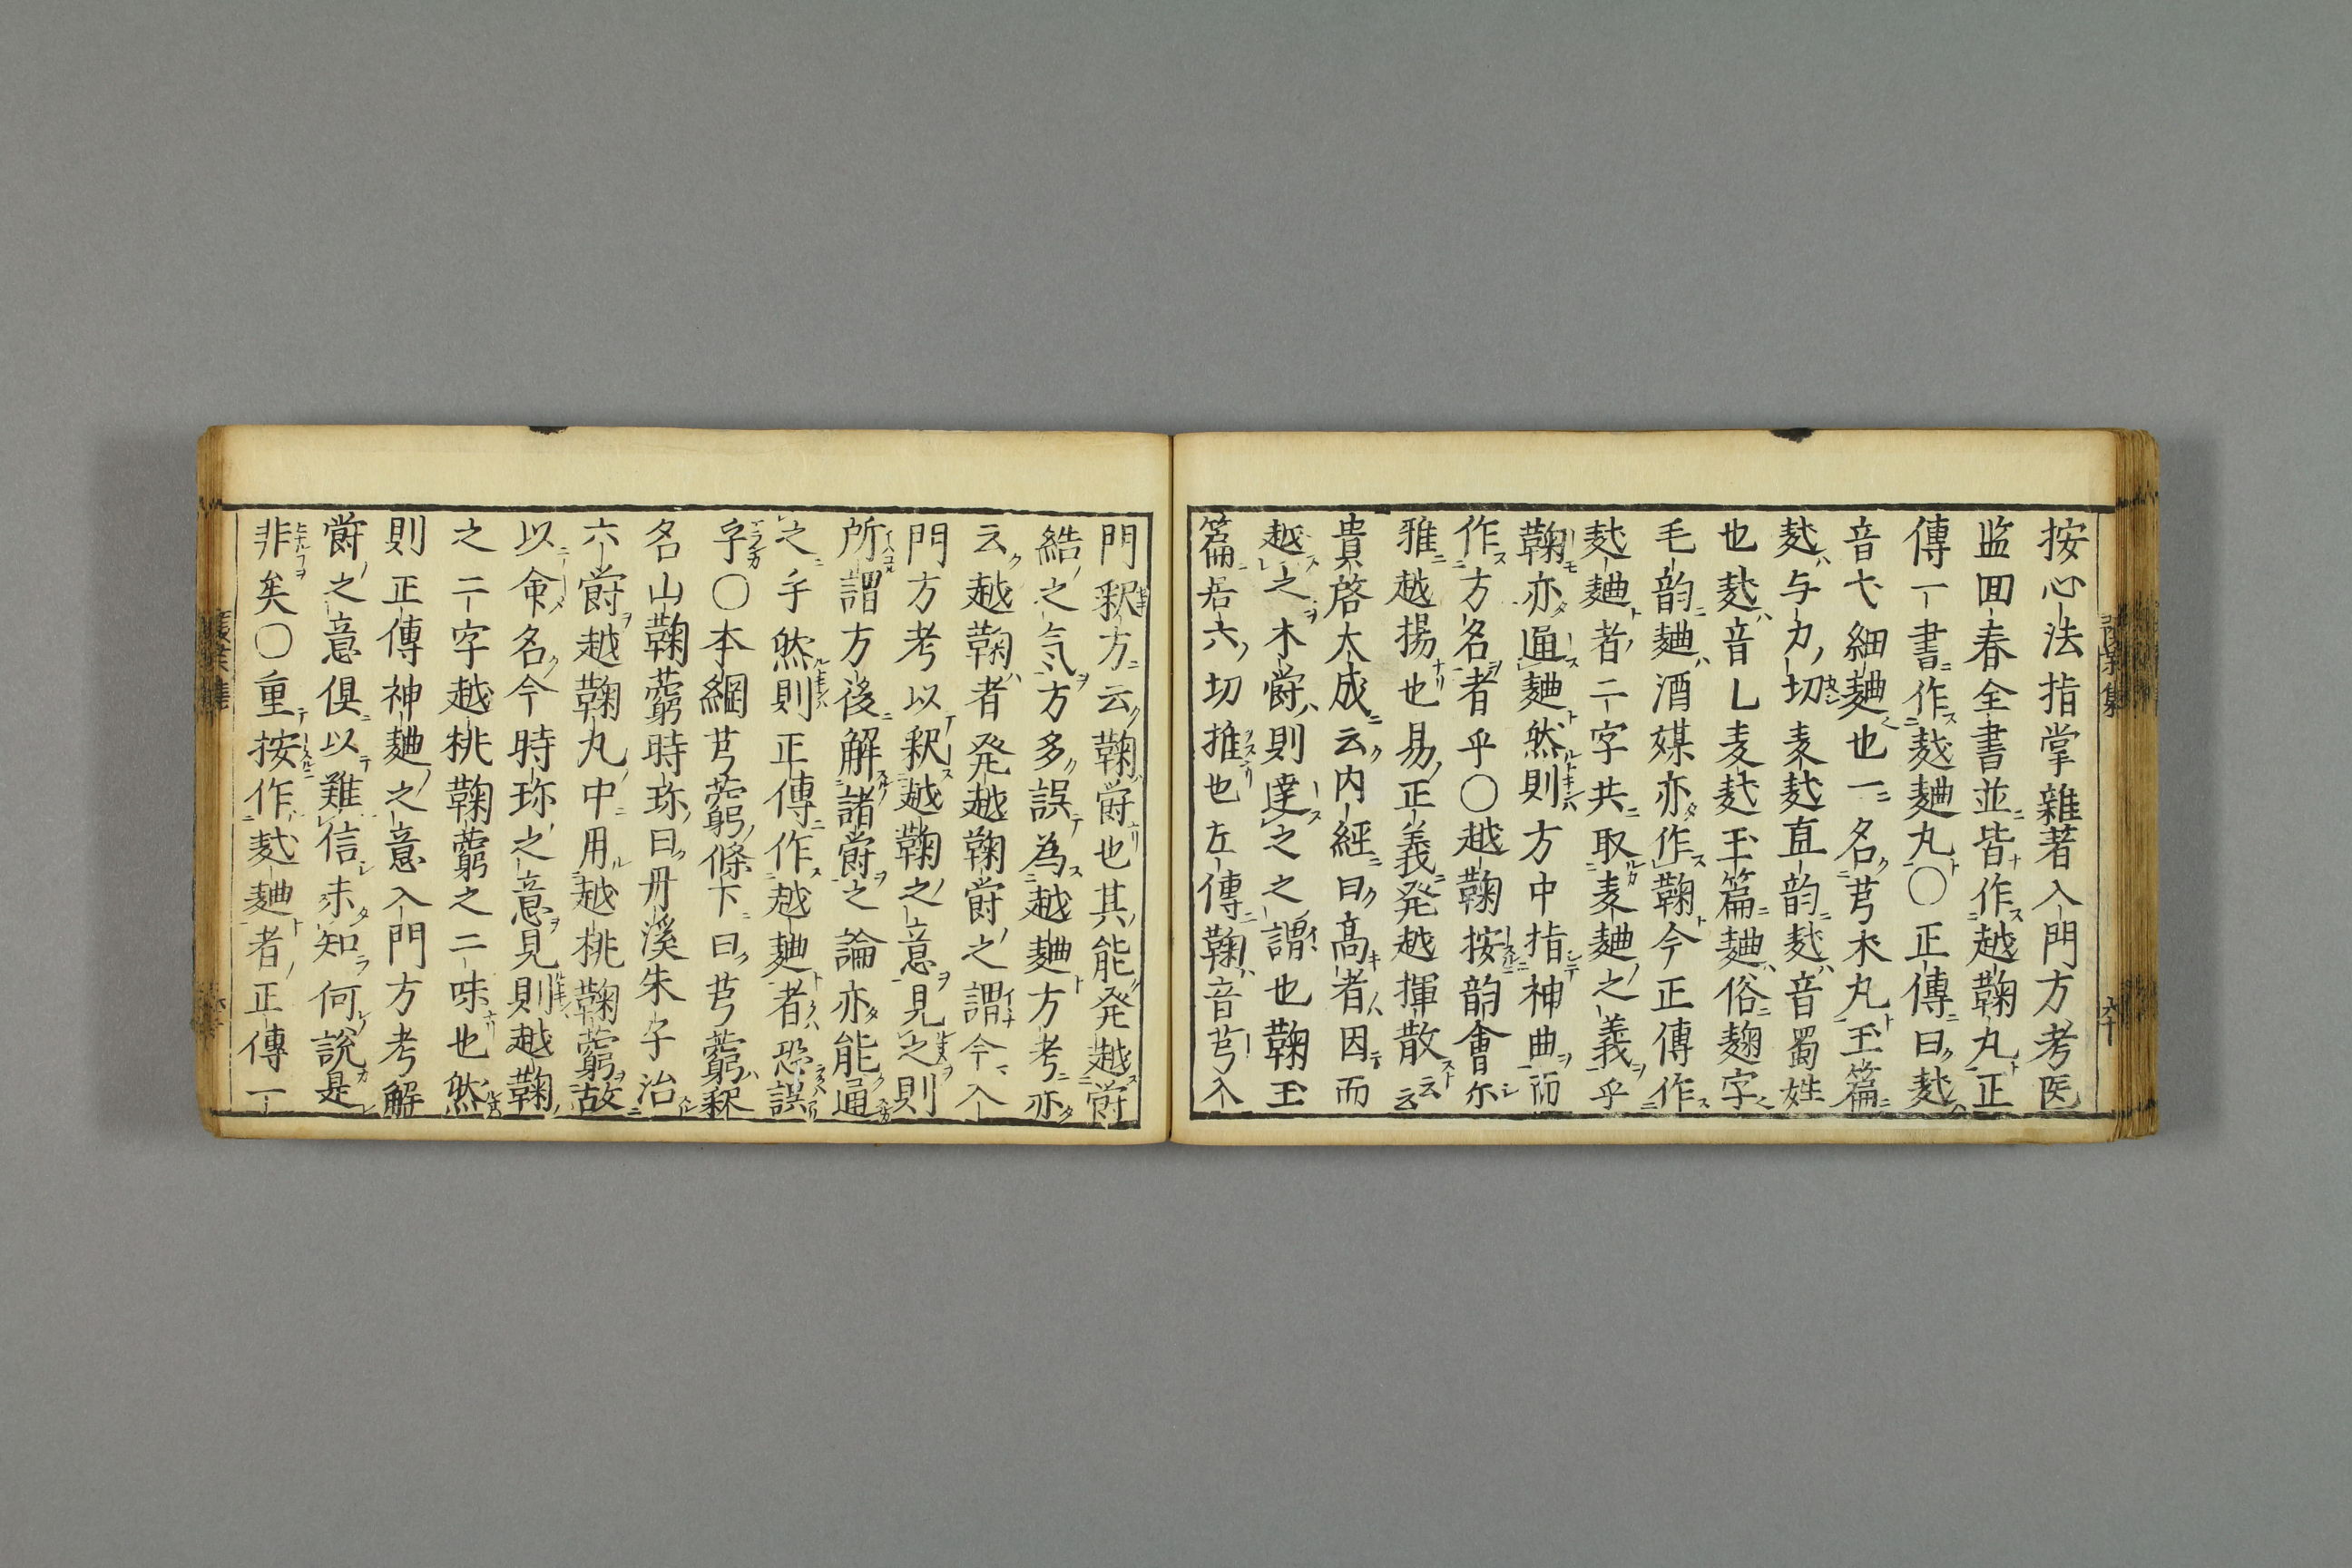 按心法指掌雜著入門方考医
监回春全書並皆作越鞠丸正
傳一書作𪌘麯丸〇正傳曰𪌘
音弋細麯也一名芎朮丸玉篇
𪌘与力切麦𪌘直韵𪌘音蜀姓
也𪌘音乚麦𪌘玉篇麯俗麹字
毛韵麯酒媒亦作鞠今正傳作
𪌘麯者二字共取麦麯之義乎
鞠亦通麯然則方中指神曲而
作方名者乎〇越鞠按韵會尓
雅越揚也易正義発越揮散云云
貴啓大成云内經曰高者因而
越之木欝則達之之謂也鞠玉
篇居六切推也左傳鞠音芎入
門釈方云鞠欝也其能発越欝
結之気方多誤為越麯方考亦
云越鞠者発越鞠欝之謂今入
門方考以釈越鞠之意見之則
所謂方後解諸欝之論亦能通
之乎然則正傳作越麯者恐誤
乎〇本綱芎藭條下曰芎藭釈
名山鞠藭時珎曰丹溪朱子治
六欝越鞠丸中用越桃鞠藭故
以命名今時珎之意見則越鞠
之二字越桃鞠藭之二味也然
則正傳神麯之意入門方考解
欝之意俱以難信未知何說是
非矣〇重按作𪌘麯者正傳一